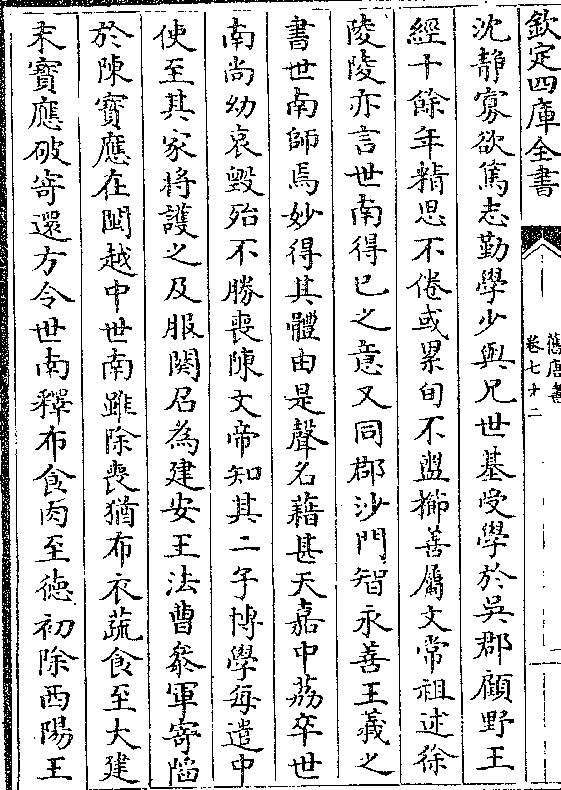 欽定四庫全書
舊唐書
卷七十二
沈靜寡欲篤志勤學少與兄世基受學於吳郡顧野王
經十餘年精思不倦或累旬不盥櫛善屬文常祖述徐
陵陵亦言世南得已之意又同郡沙門智永善王羲之
書世南師焉妙得其體由是聲名藉甚天嘉中荔卒世
南尚幼哀毀殆不勝喪陳文帝知其二子博學每遣中
使至其家將護之及服闋召為建安王法曹參軍寄陷
於陳寶應在閩越中世南雖除喪猶布衣蔬食至大建
末寶應破寄還方令世南釋布食肉至德初除西陽王